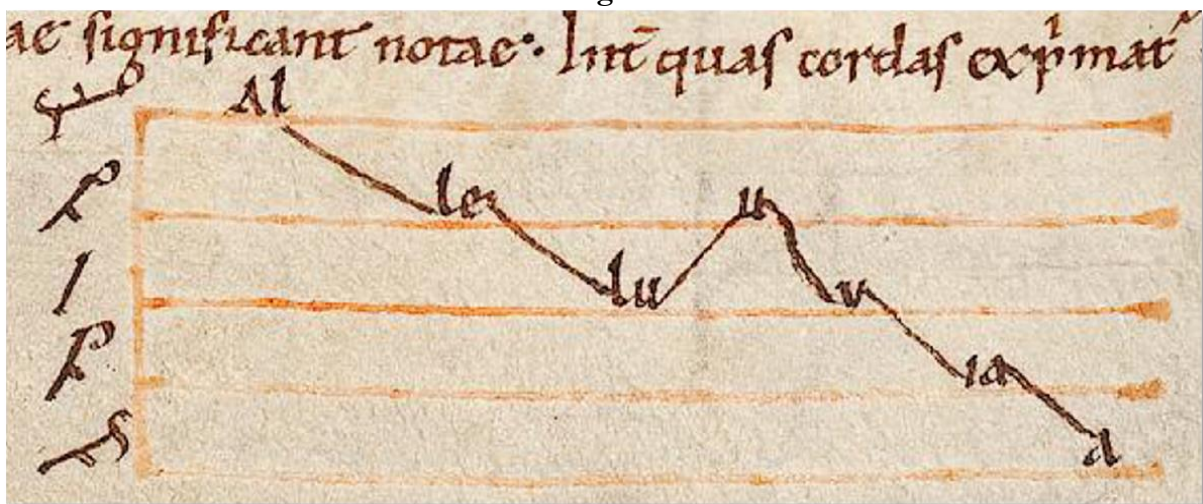 ae significant notae·. Int̄ quas cordas exp̍mat
Al
le
lu
u
v
ia
a